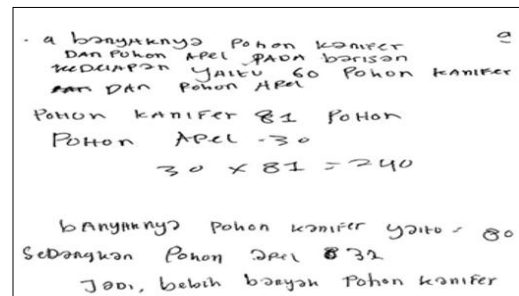 . a banyaknya Pohon kanifer a
DAN Pohon APel PADA barisan
KEDELAPan YAitu 60 Pohon KANiFER
DAN Pohon APel
POHON KANIFER 81 POHON
POHON APel -30
30 x 81 = 240
bANyAKnya Pohon kanifer yaitu - 80
SeDangkan Pohon apel 832
JaDi, bebih banyak Pohon kanifer